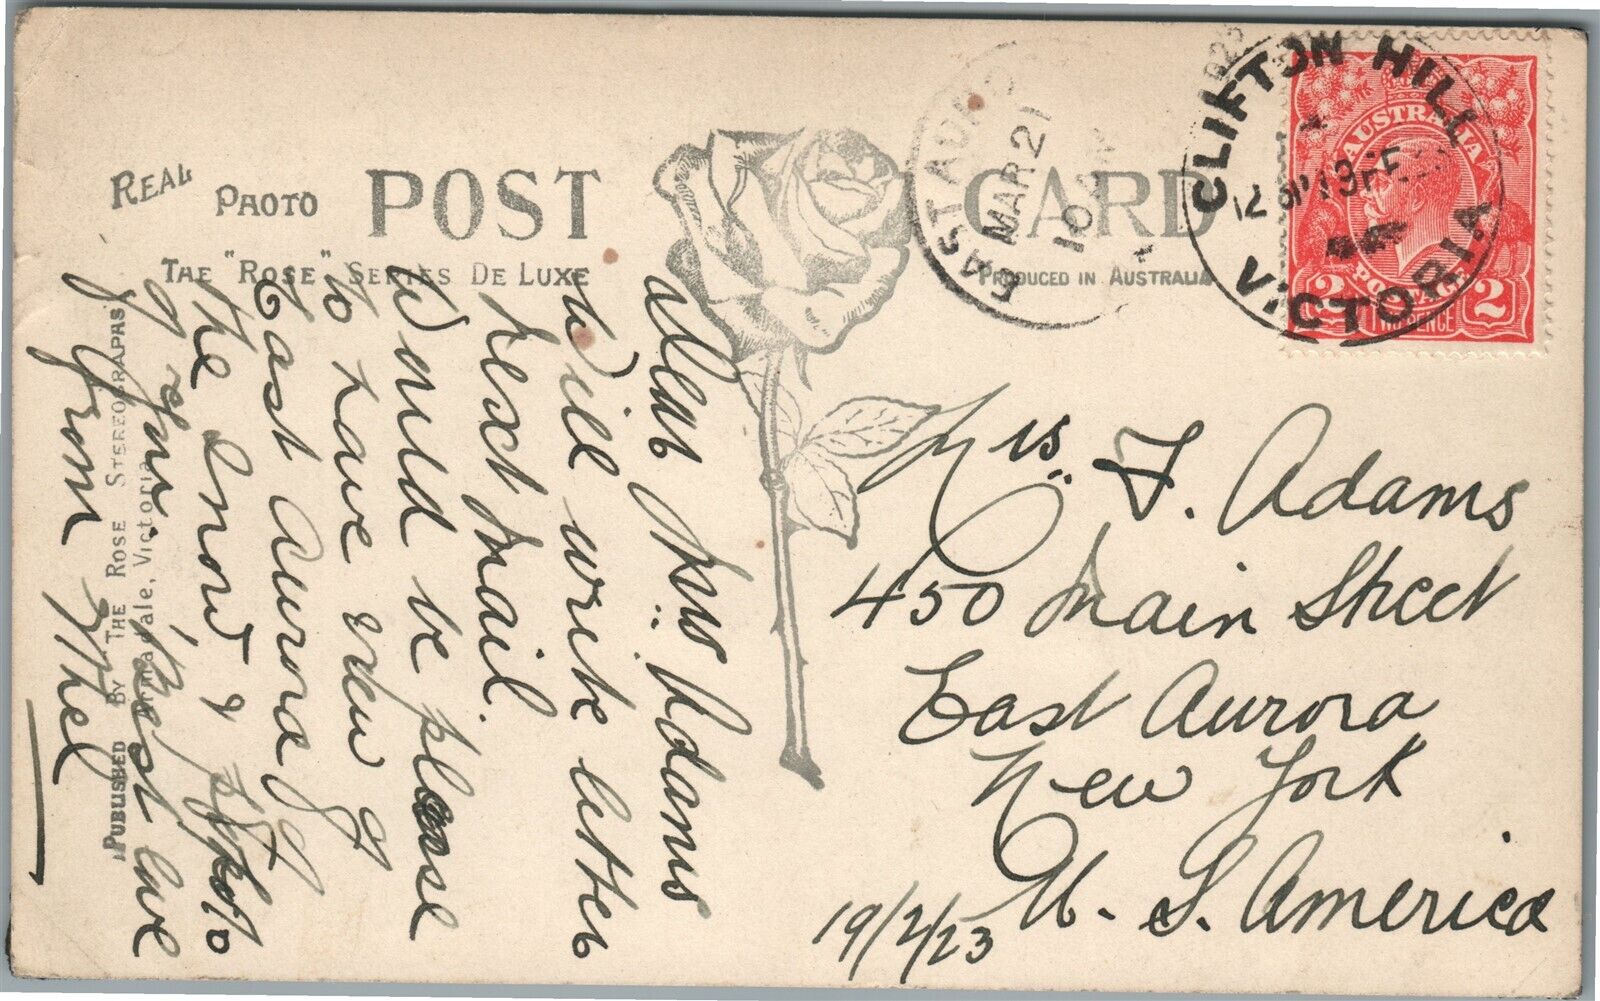 REAL PHOTO POST CARD
THE "ROSE" SERIES DE LUXE
PRODUCED IN AUSTRALIA
PUBLISHED BY THE ROSE STEREOGRAPHS
Armadale, Victoria
EAST AURO
MAR 21
10 AM
CLIFTON HILL
VICTORIA
AUSTRALIA
2 POSTAGE 2
TWO PENCE
Dear Mrs Adams
Will write letter
next mail.
Would be please
to have view of
East Aurora of
the Snow & photo
of you. Best love
from Ethel
Mrs. F. Adams
450 Main Street
East Aurora
New York
U. S. America
19/2/23